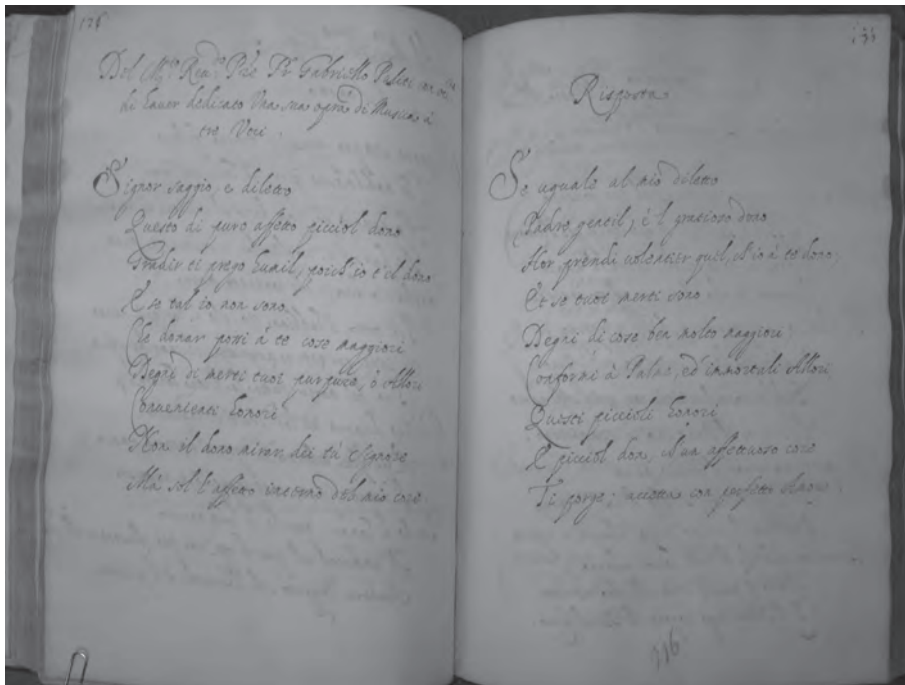 126
Del M.to Rev.do P̃re Fr Gabriello Puliti con oc.ne
di hauer dedicato Vna sua opera di Musica à
tre Voci.
Signor saggio, e diletto
Questo di puro affetto picciol dono
Gradir ti prego humil, poich' io t' el dono
E se tal io non sono,
Che donar possi à te cose maggiori
Degni di merti tuoi purpure, ò Allori
Conuenienti honori
Non il dono mirar dei tù Signore
Mà sol l' affetto interno del mio core
Risposta.
Se uguale al mio diletto
Padre gentil, è 'l grazioso dono
Hor prendi uolentier quel, ch' io à te dono;
Et se tuoi merti sono
Degni di cose ben molto maggiori
Conformi à Palme, ed' immortali Allori
Questi piccioli honori
E picciol don, ch' un affettuoso core
Ti porge; accetta con perfetto Amore.
116